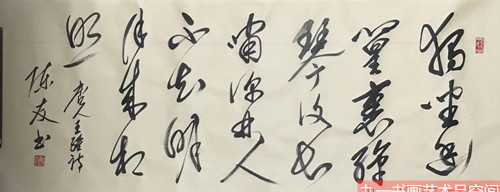 獨坐幽
篁裏彈
琴復長
嘯深林人
不知明
月来相
照
唐人王维诗
陈友书
九一书画艺术品空间